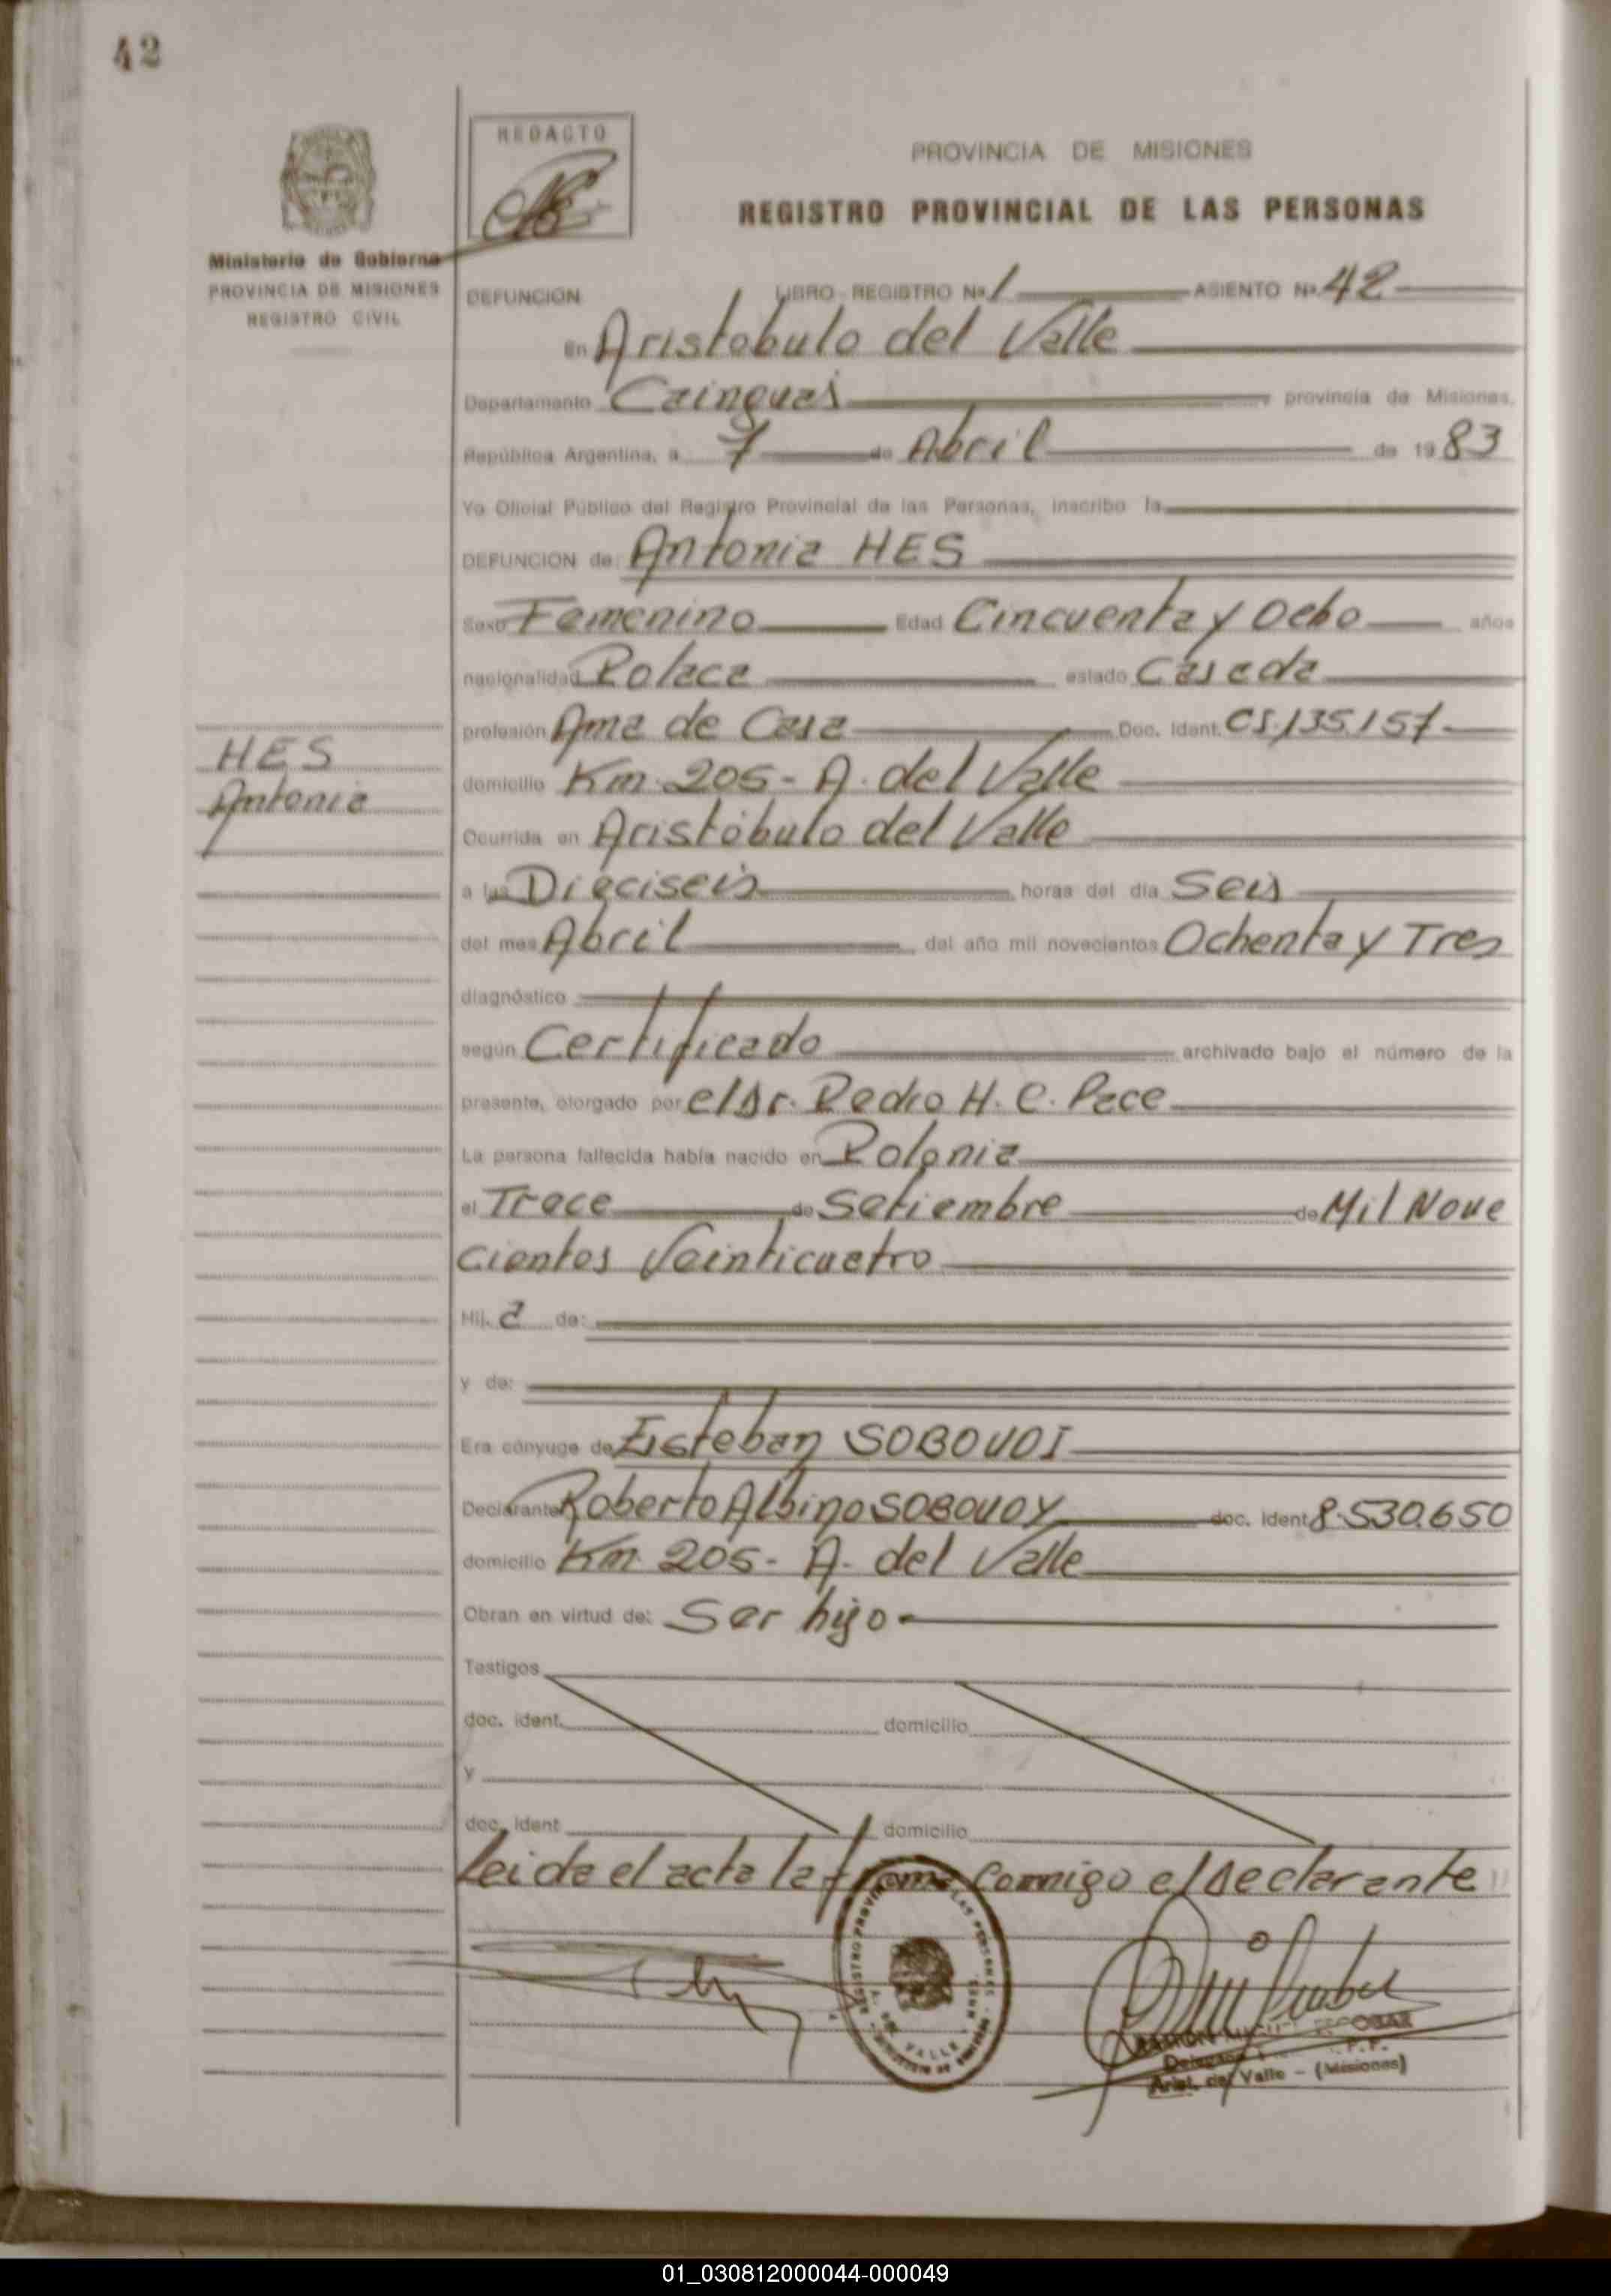 42
REDACTO
PROVINCIA DE MISIONES
REGISTRO PROVINCIAL DE LAS PERSONAS
Ministerio de Gobierno
PROVINCIA DE MISIONES
REGISTRO CIVIL
DEFUNCION LIBRO REGISTRO Nº 1 ASIENTO Nº 42
En Aristobulo del Valle
Departamento Cainguas provincia de Misiones,
República Argentina, a 7 de Abril de 1983
Yo Oficial Público del Registro Provincial de las Personas, inscribo la
DEFUNCION de: Antonia HES
Sexo Femenino Edad Cincuenta y Ocho años
nacionalidad Polaca estado Casada
profesión Ama de Casa Doc. Ident. CI.135.157
HES
Antonia
domicilio Km. 205 - A. del Valle
Ocurrida en Aristóbulo del Valle
a las Dieciseis horas del día Seis
del mes Abril del año mil novecientos Ochenta y Tres
diagnóstico
según Certificado archivado bajo el número de la
presente, otorgado por el Dr. Pedro H. C. Pace
La persona fallecida había nacido en Polonia
el Trece de Setiembre de Mil Nove
cientos Veinticuatro
Hij a de:
y de:
Era cónyuge de Esteban SOBOUOI
Declarante Roberto Albino SOBOUOY doc. ident 8.530.650
domicilio Km. 205 - A. del Valle
Obran en virtud de: Ser hijo
Testigos
doc. ident. domicilio
y
doc. ident domicilio
Leida el acta la firma conmigo el declarante
REGISTRO PROVINCIAL DE LAS PERSONAS
A. DEL VALLE
RAMON ESCOBAR
Arist. del Valle - (Misiones)
01_030812000044-000049